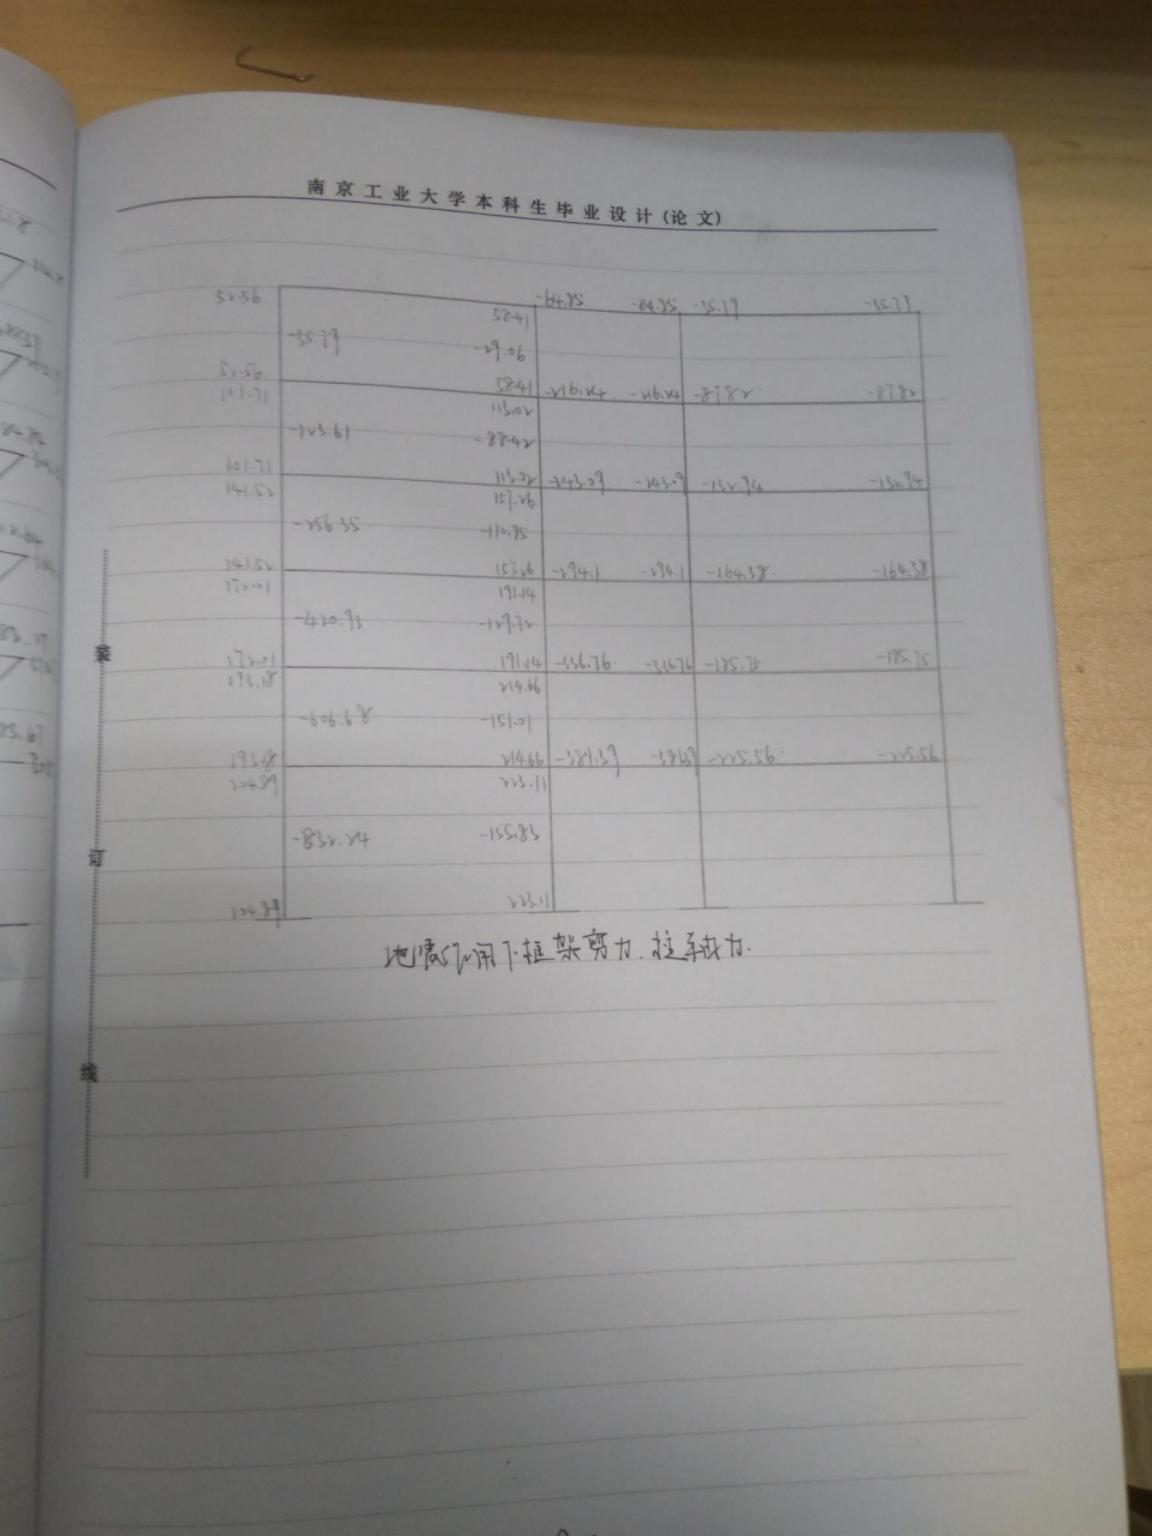 南京工业大学本科生毕业设计(论文)
52.56 -64.85 -64.85 -35.79 -35.79
58.41
-35.79 -29.06
52.56 58.41 -216.24 -216.24 -87.82 -87.82
101.71 113.02
-123.61 -88.42
101.71 113.02 -243.09 -243.09 -132.74 -132.74
141.52 157.26
-256.35 -110.35
141.52 157.26 -294.1 -294.1 -164.58 -164.58
172.01 191.14
-420.93 -129.72
172.01 191.14 -336.76 -336.76 -185.75 -185.75
193.18 214.66
-606.68 -151.01
193.18 214.66 -381.39 -381.39 -225.56 -225.56
204.89 223.11
-832.24 -155.83
204.89 223.11
地震作用下框架剪力、柱轴力.
装
订
线